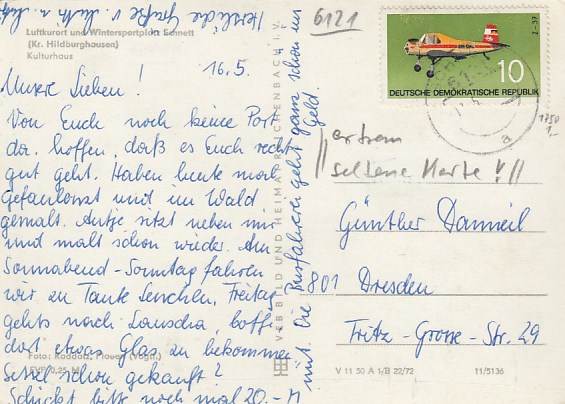 Herzliche Grüße v.
6121
Luftkurort und Wintersportplatz Sennett
(Kr. Hildburghausen)
Kulturhaus
16.5.
Unsere Lieben!
Von Euch noch keine Post
da. hoffen, daß es Euch recht
gut geht. Haben heute mal
gefaulenzt und im Wald
gemalt. Antje sitzt neben mir
und malt schon wieder. Am
Sonnabend-Sonntag fahren
wir zu Tante Lenchen, Freitag
gehts nach Lauscha, hoffe
dort etwas Glas zu bekommen
Foto: Plauen (Vogtl.)
EVP 0,25 M
Sessel schon gekauft?
Schickt bitte noch mal 20.- M
mit. Die Busfahrerei geht ganz schön ins
Geld.
VEB BILD UND HEIMAT REICHENBACH I. V.
2-37
10
DEUTSCHE DEMOKRATISCHE REPUBLIK
61
a
1750
1,-
//extrem
seltene Marke!//
Günther Danneil
801 Dresden
Fritz-Grosse-Str. 29
V 11 50 A 1/B 22/72
11/5136